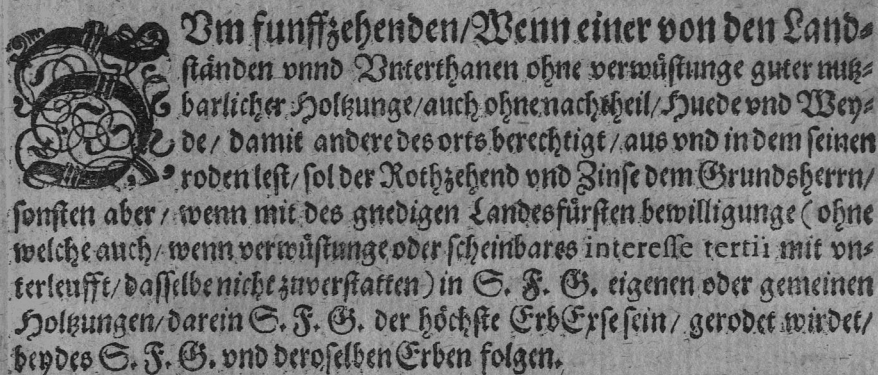 ZVm funffzehenden/Wenn einer von den Land⸗
ständen vnnd Vnterthanen ohne verwüstunge guter nutz⸗
barlicher Holtzunge/auch ohne nachtheil/Huede vnd Wey⸗
de/ damit andere des orts berechtigt/aus vnd in dem seinen
roden lest/ sol der Rothzehend vnd Zinse dem Grundsherrn/
sonsten aber/ wenn mit des gnedigen Landesfürsten bewilligunge (ohne
welche auch/ wenn verwüstunge oder scheinbares interesse tertii mit vn⸗
terleufft/dasselbe nicht zuverstatten) in S. F. G. eigenen oder gemeinen
Holtzungen/darein S. F. G. der höchste ErbExse sein/ gerodet wirdet/
beydes S. F. G. vnd deroselben Erben folgen.